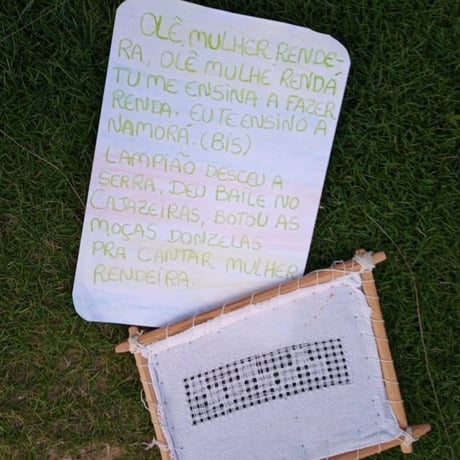 OLÊ, MULHER RENDE-
RA, OLÊ MULHÉ RENDÁ
TU ME ENSINA A FAZER
RENDA. EU TE ENSINO A
NAMORÁ. (BIS)
LAMPIÃO DESCEU A
SERRA, DEU BAILE NO
CAJAZEIRAS, BOTOU AS
MOÇAS DONZELAS
PRA CANTAR MULHER
RENDEIRA.